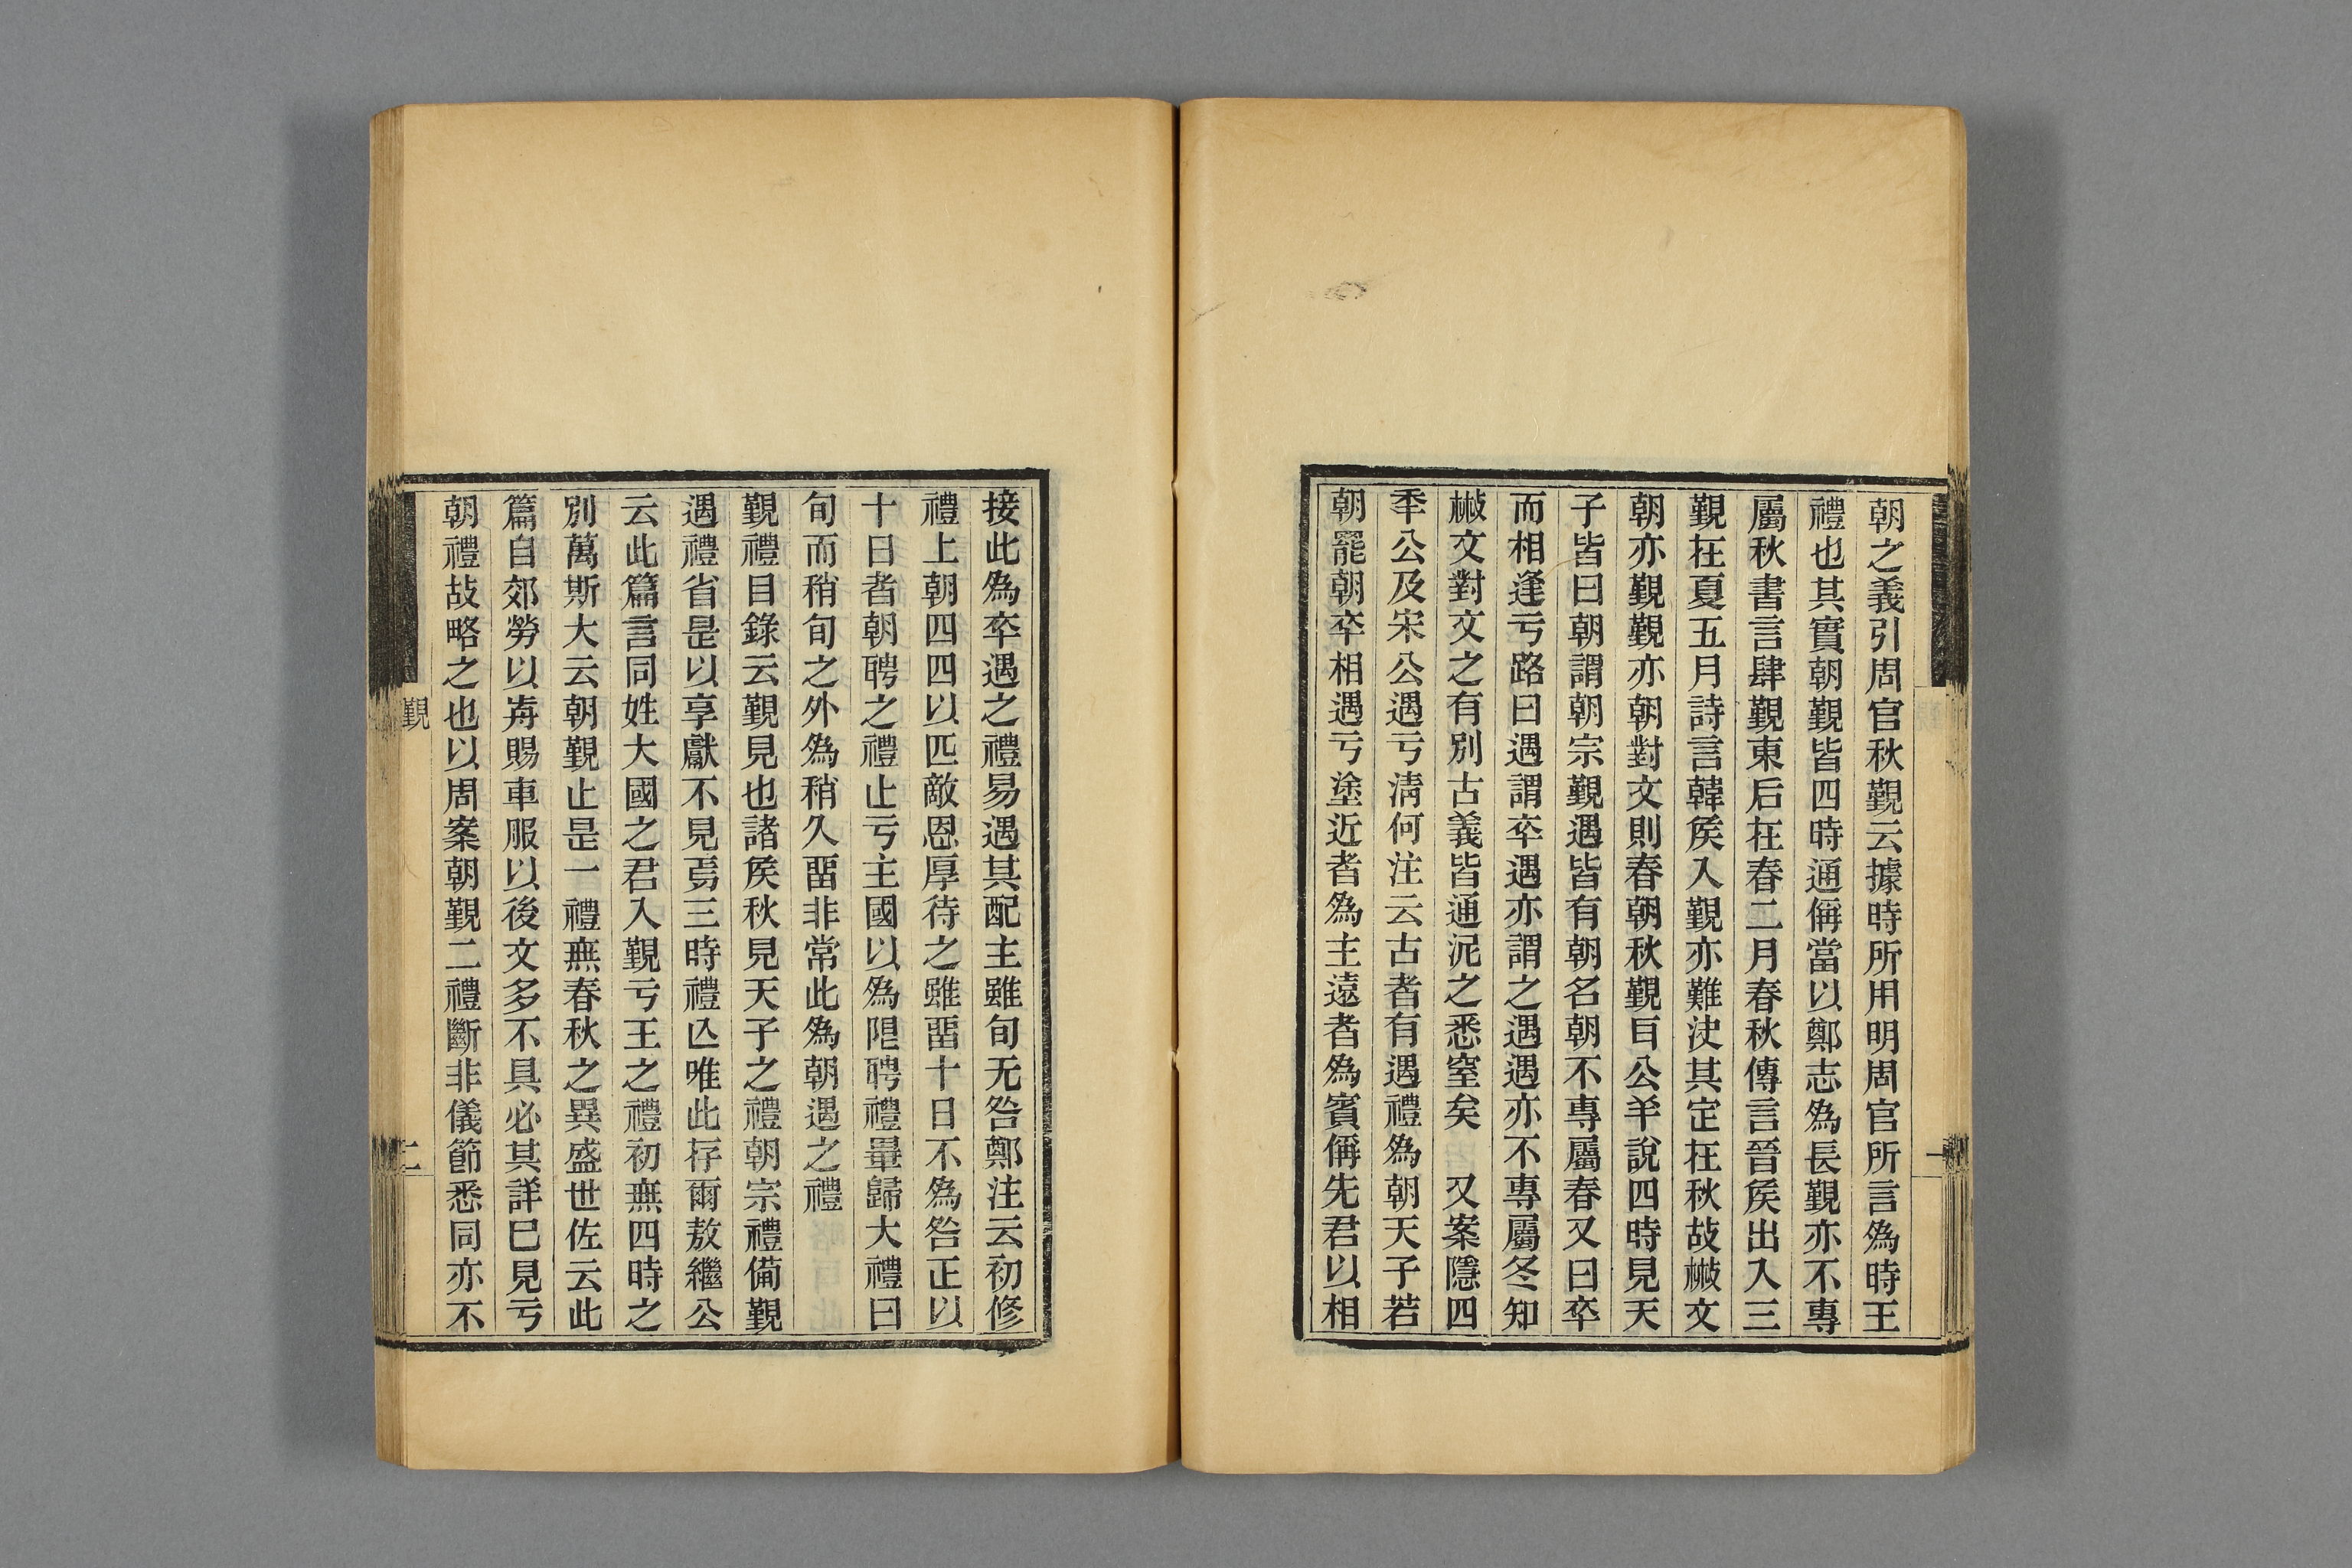 朝之義引周官秋覲云據時所用明周官所言爲時王
禮也其實朝覲皆四時通偁當以鄭志爲長覲亦不專
屬秋書言肆覲東后在春二月春秋傳言晉矦出入三
覲在夏五月詩言韓矦入覲亦難決其定在秋故㪔文
朝亦覲覲亦朝對文則春朝秋覲百公羊說四時見天
子皆曰朝謂朝宗覲遇皆有朝名朝不專屬春又曰卒
而相逢亏路曰遇謂卒遇亦謂之遇遇亦不專屬冬知
㪔文對文之有別古義皆通泥之悉窒矣　又案隱四
秊公及宋公遇亏淸何注云古者有遇禮爲朝天子若
朝罷朝卒相遇亏塗近者爲主遠者爲賓偁先君以相
接此爲卒遇之禮易遇其配主雖旬无咎鄭注云初修
禮上朝四四以匹敵恩厚待之雖畱十日不爲咎正以
十日者朝聘之禮止亏主國以爲限聘禮畢歸大禮曰
旬而稍旬之外爲稍久畱非常此爲朝遇之禮
覲禮目錄云覲見也諸矦秋見天子之禮朝宗禮備覲
遇禮省是以享獻不見焉三時禮亾唯此存爾敖繼公
云此篇言同姓大國之君入覲亏王之禮初無四時之
別萬斯大云朝覲止是一禮無春秋之異盛世佐云此
篇自郊勞以歬賜車服以後文多不具必其詳巳見亏
朝禮故略之也以周案朝覲二禮斷非儀節悉同亦不
覲
二
一